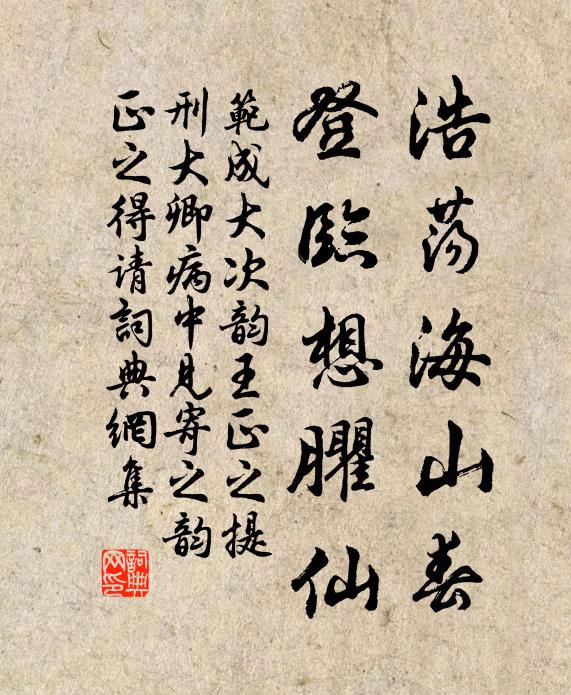 浩荡海山春
登臨想臞仙
範成大次韵王正之提
刑大卿病中見寄之韵
正之得請詞典網集
詞典网印